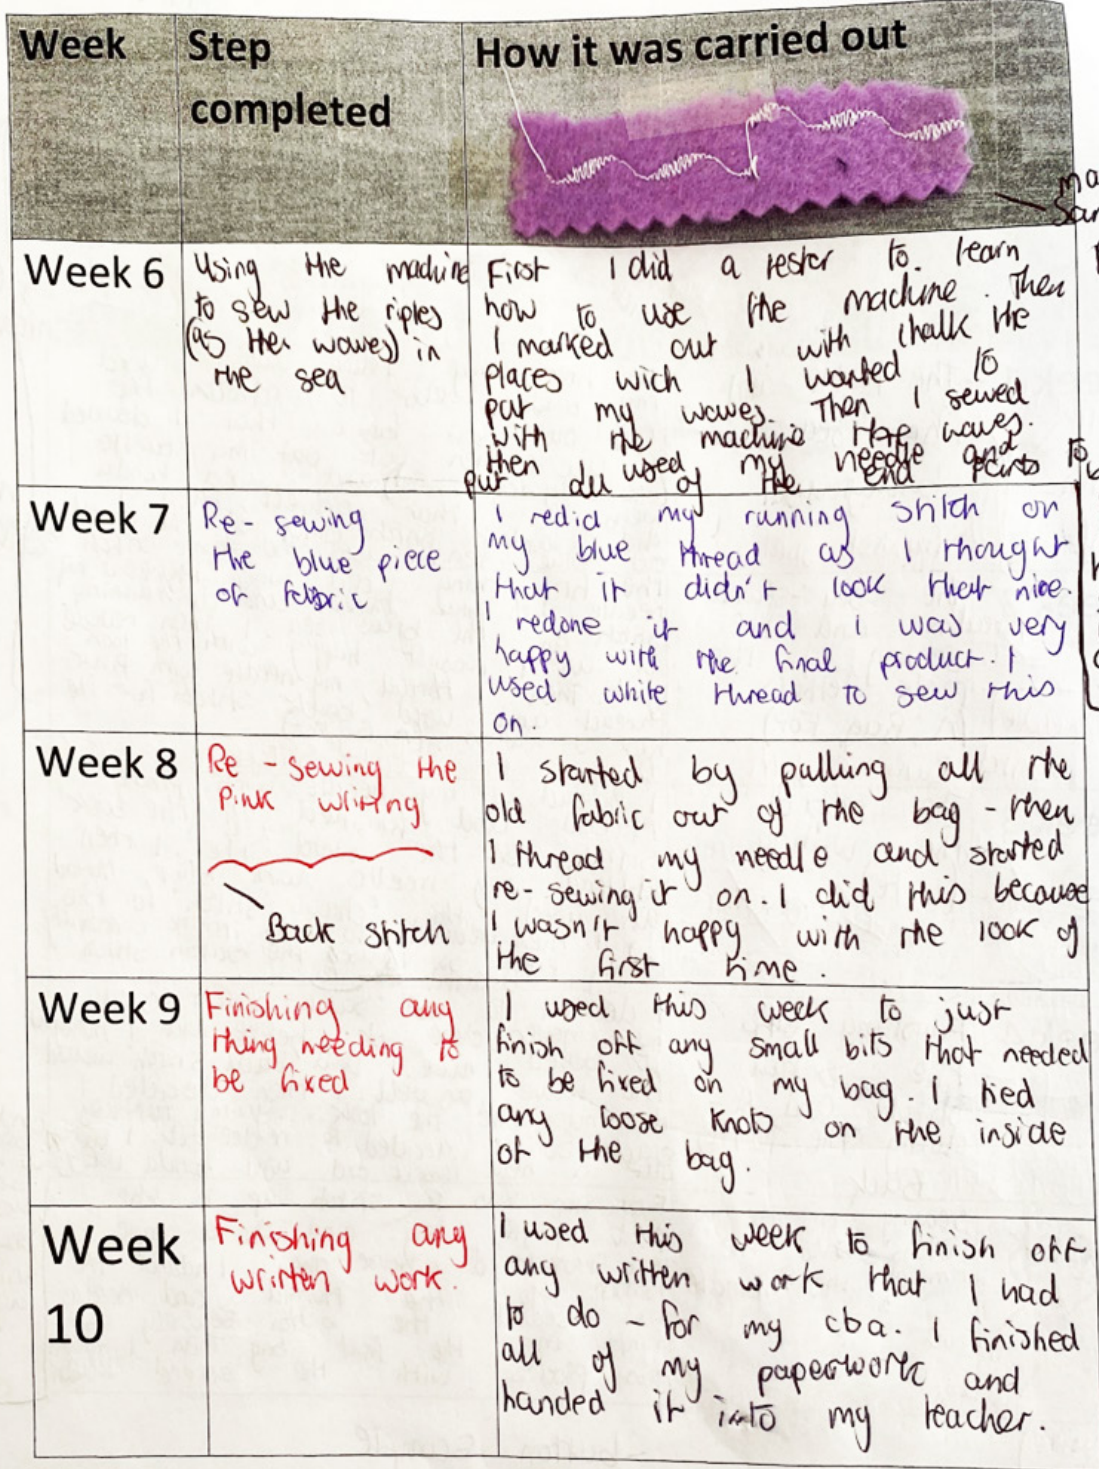 Week
Step
completed
How it was carried out
Week 6
Using the machine
to sew the riples
(as the waves) in
the sea
First I did a tester to learn
how to use the machine. Then
I marked out with chalk the
places wich I wanted to
put my waves. Then I sewed
with the machine the waves.
then used my needle and to
put all of the end parts
Week 7
Re-sewing
the blue piece
of fabric
I redid my running stitch on
my blue thread as I thought
that it didn't look that nice.
I redone it and I was very
happy with the final product. I
used white thread to sew this
on.
Week 8
Re-sewing the
pink writing
Back stitch
I started by pulling all the
old fabric out of the bag - then
I thread my needle and started
re-sewing it on. I did this because
I wasn't happy with the look of
the first time.
Week 9
Finishing any
thing needing to
be fixed
I used this week to just
finish off any small bits that needed
to be fixed on my bag. I tied
any loose knots on the inside
of the bag.
Week
10
Finishing any
written work.
I used this week to finish off
any written work that I had
to do - for my cba. I finished
all of my paperwork and
handed it into my teacher.